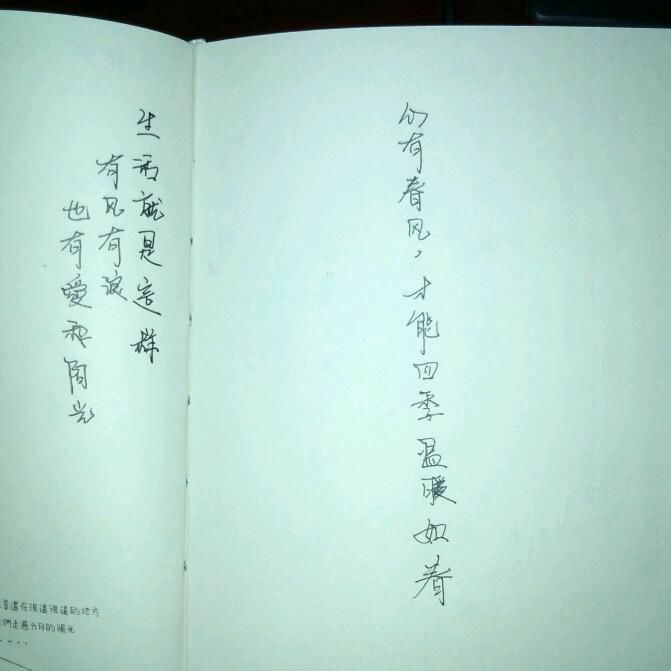 生活就是這样
有风有浪
也有愛和阳光
還在很遠很遠的地方
們走過六月的陽光
心有春风，才能四季温暖如春